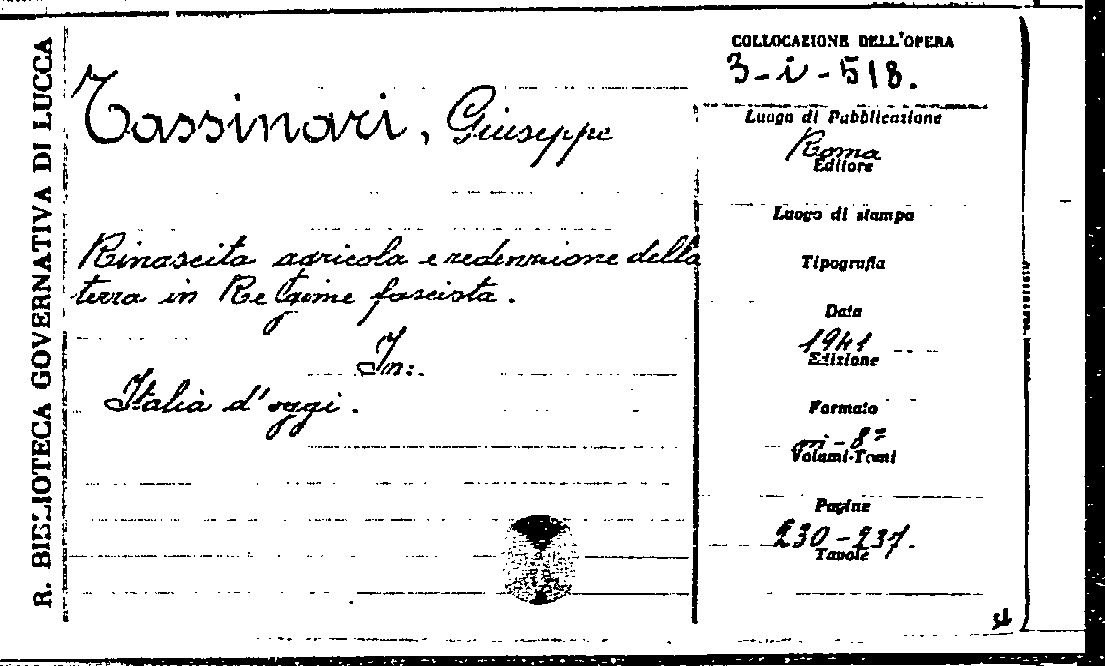 R. BIBLIOTECA GOVERNATIVA DI LUCCA
Tassinari, Giuseppe
Rinascita agricola e redenzione della
terra in Regime fascista.
In:
Italia d'oggi.
COLLOCAZIONE DELL'OPERA
3-i-518.
Luogo di Pubblicazione
Roma
Editore
Luogo di stampa
Tipografia
Data
1941
Edizione
Formato
in-8º
Volumi-Tomi
Pagine
230-237.
Tavole